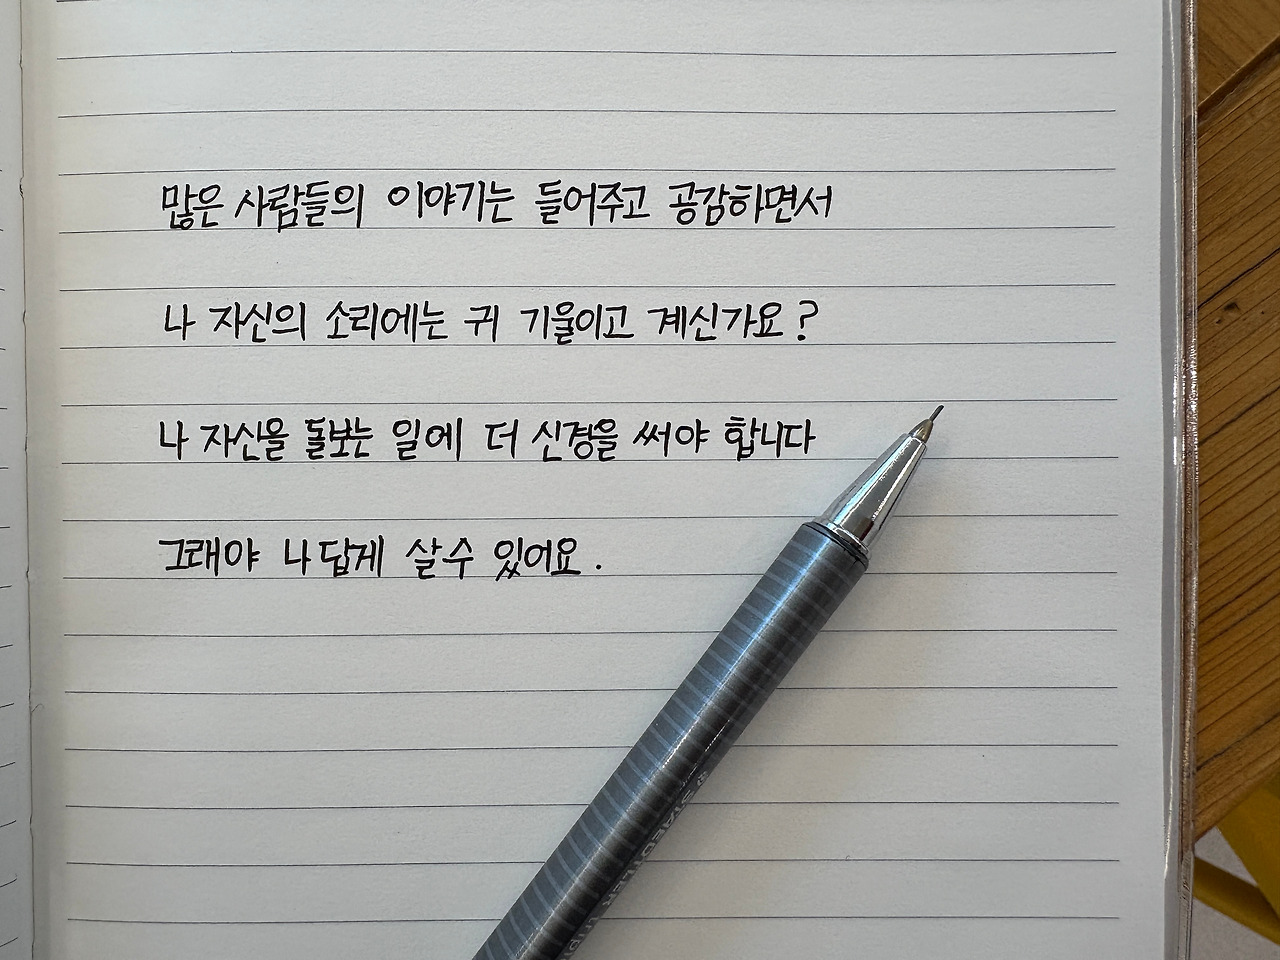 많은 사람들의 이야기는 들어주고 공감하면서
나 자신의 소리에는 귀 기울이고 계신가요?
나 자신을 돌보는 일에 더 신경을 써야 합니다
그래야 나답게 살 수 있어요.
STAEDTLER